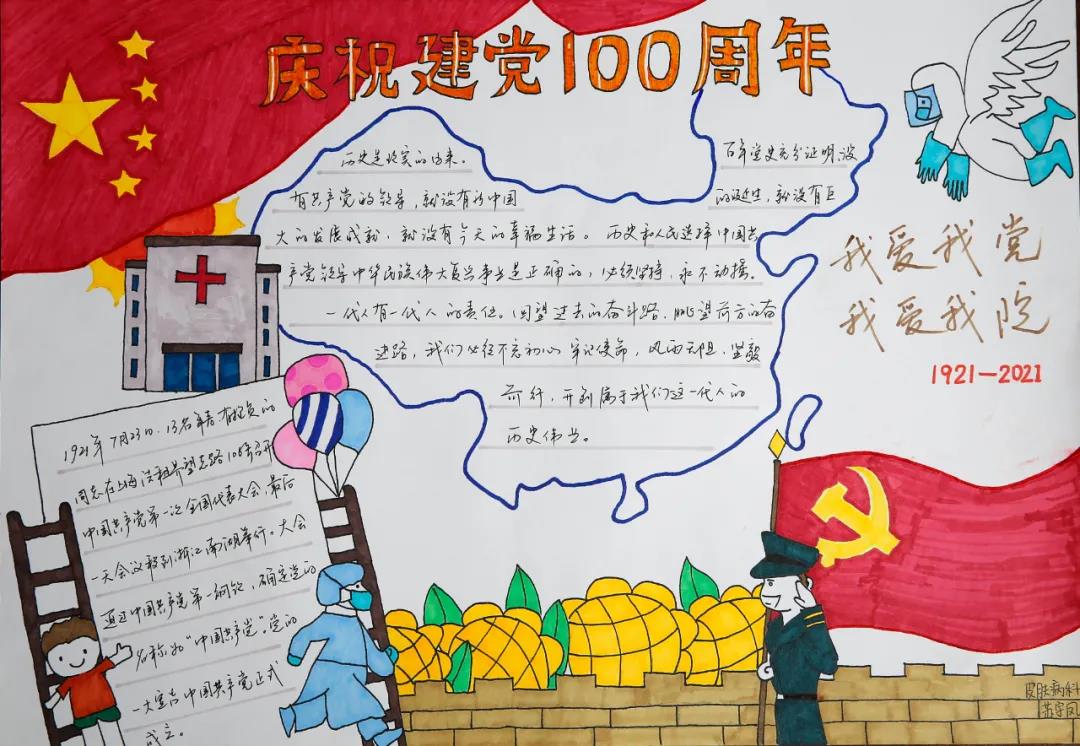 庆祝建党100周年
历史是现实的由来。
百年党史充分证明,没
有共产党的领导,就没有新中国
的诞生,就没有巨
大的发展成就,就没有今天的幸福生活。历史和人民选择中国共
产党领导中华民族伟大复兴事业是正确的,必须坚持,永不动摇。
一代人有一代人的责任。回望过去的奋斗路,眺望前方的奋
进路,我们必须不忘初心 牢记使命,风雨无阻,坚毅
前行,开创属于我们这一代人的
历史伟业。
我爱我党
我爱我院
1921—2021
1921年7月23日,13名年青有抱负的
同志在上海法租界望志路106号召开
中国共产党第一次全国代表大会,最后
一天会议移到浙江南湖举行。大会
通过中国共产党第一纲领,确定党的
名称为“中国共产党”。党的
一大宣告中国共产党正式
成立。
皮肤病科